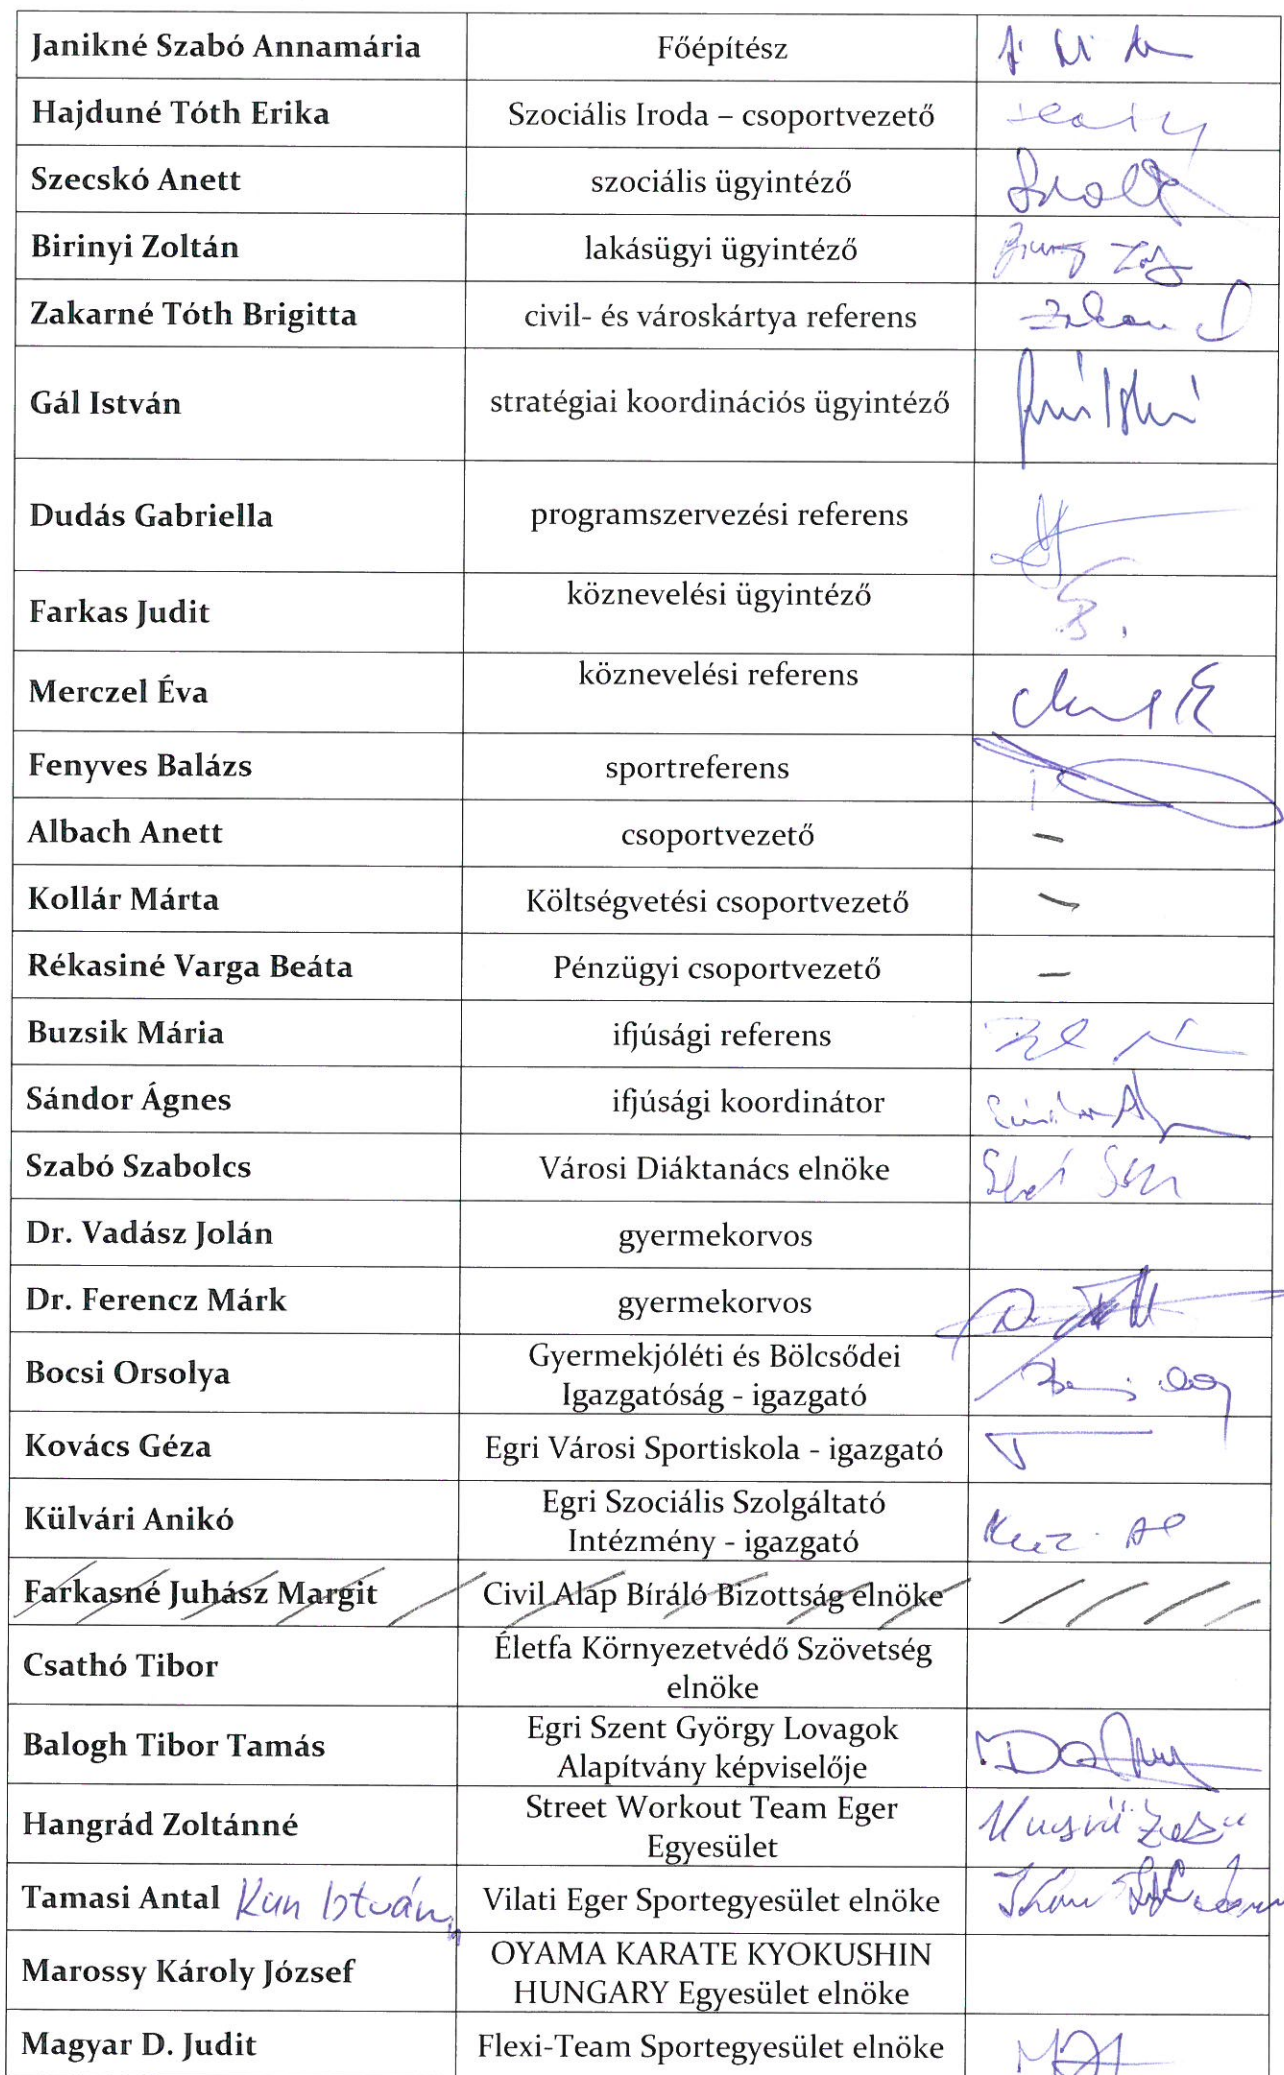 Janikné Szabó Annamária Főépítész
Hajduné Tóth Erika Szociális Iroda – csoportvezető
Szecskó Anett szociális ügyintéző
Birinyi Zoltán lakásügyi ügyintéző
Zakarné Tóth Brigitta civil- és városkártya referens
Gál István stratégiai koordinációs ügyintéző
Dudás Gabriella programszervezési referens
Farkas Judit köznevelési ügyintéző
Merczel Éva köznevelési referens
Fenyves Balázs sportreferens
Albach Anett csoportvezető –
Kollár Márta Költségvetési csoportvezető –
Rékasiné Varga Beáta Pénzügyi csoportvezető –
Buzsik Mária ifjúsági referens
Sándor Ágnes ifjúsági koordinátor
Szabó Szabolcs Városi Diáktanács elnöke
Dr. Vadász Jolán gyermekorvos
Dr. Ferencz Márk gyermekorvos
Bocsi Orsolya Gyermekjóléti és Bölcsődei
Igazgatóság - igazgató
Kovács Géza Egri Városi Sportiskola - igazgató
Külvári Anikó Egri Szociális Szolgáltató
Intézmény - igazgató
Farkasné Juhász Margit Civil Alap Bíráló Bizottság elnöke
Csathó Tibor Életfa Környezetvédő Szövetség
elnöke
Balogh Tibor Tamás Egri Szent György Lovagok
Alapítvány képviselője
Hangrád Zoltánné Street Workout Team Eger
Egyesület
Tamasi Antal Kun István Vilati Eger Sportegyesület elnöke
Marossy Károly József OYAMA KARATE KYOKUSHIN
HUNGARY Egyesület elnöke
Magyar D. Judit Flexi-Team Sportegyesület elnöke